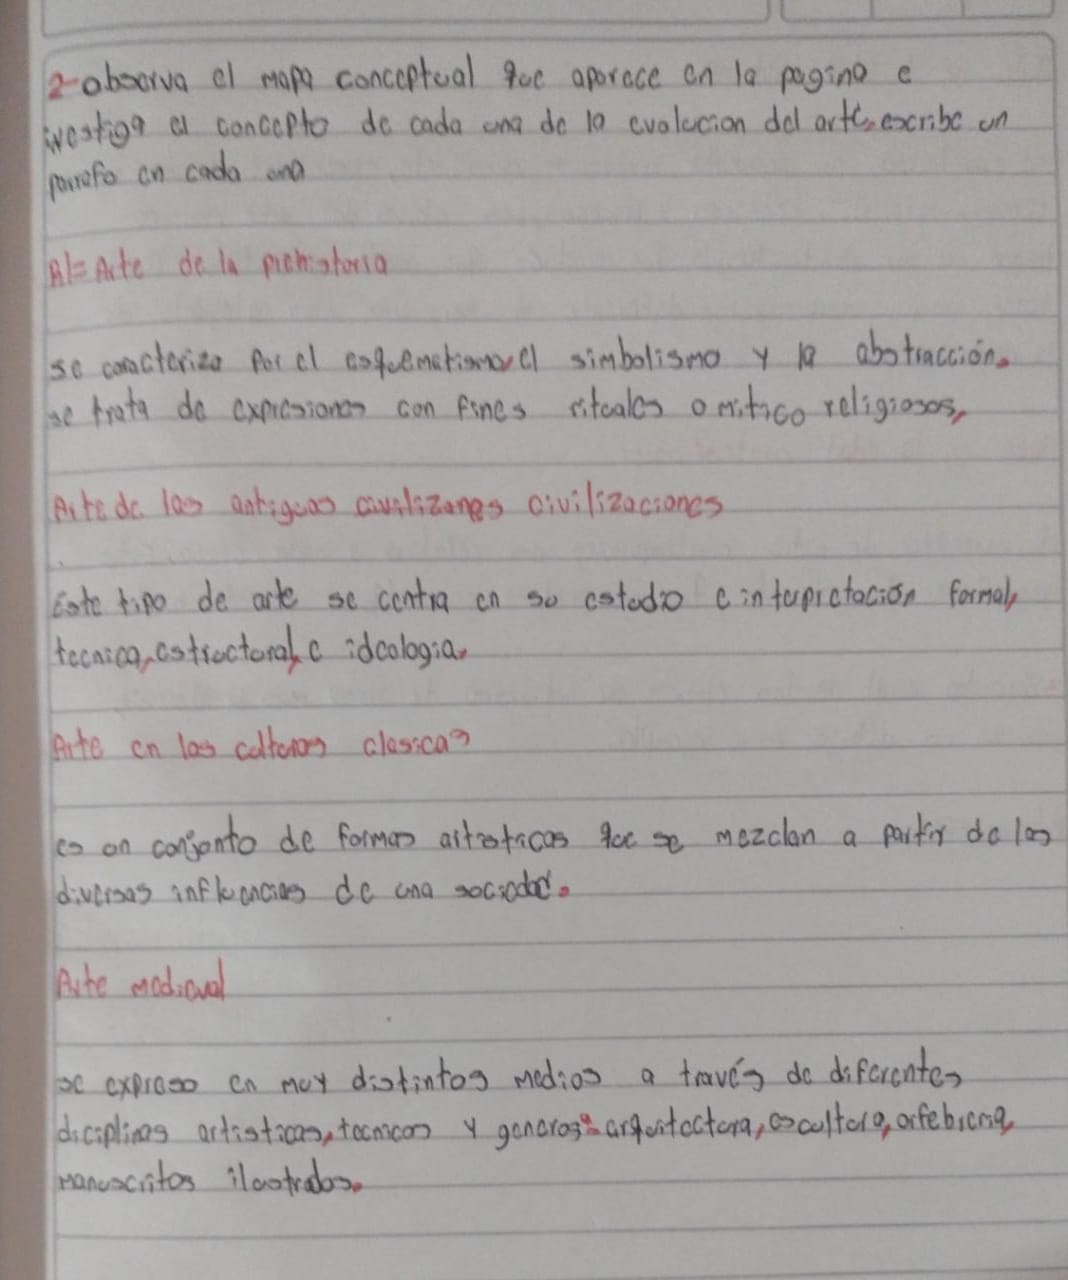 2-observa el mapa conceptual que aparece en la pagina e
investiga el concepto de cada una de la evolucion del arte, escribe un
parrafo en cada una
A)= Arte de la prehistoria
se caracteriza por el esquematismo, el simbolismo y la abstracción.
se trata de expresiones con fines rituales o mitico religiosos,
Arte de las antiguas civilizanes civilizaciones
Este tipo de arte se centra en su estudio e interpretación formal,
tecnica, estructural, e ideologia,
Arte en las culturas clasicas
es un conjunto de formas artisticas que se mezclan a partir de las
diversas influencias de una sociedad.
Arte medieval
se expreso en muy distintos medios a través de diferentes
diciplinas artisticas, tecnicas y generos: arquitectura, escultura, orfebreria,
manuscritos ilustrados.